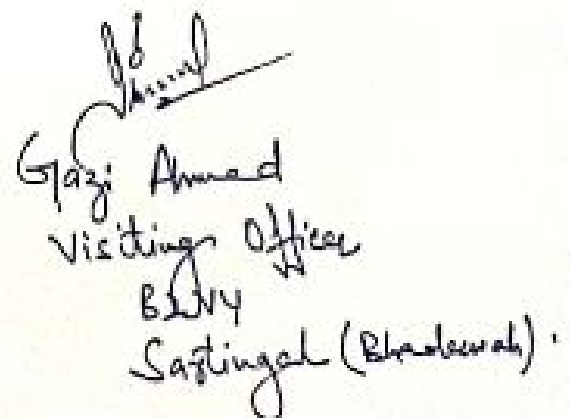 Gazi Ahmed
Visiting Officer
B2V4
Sartingal (Bhaderwah).